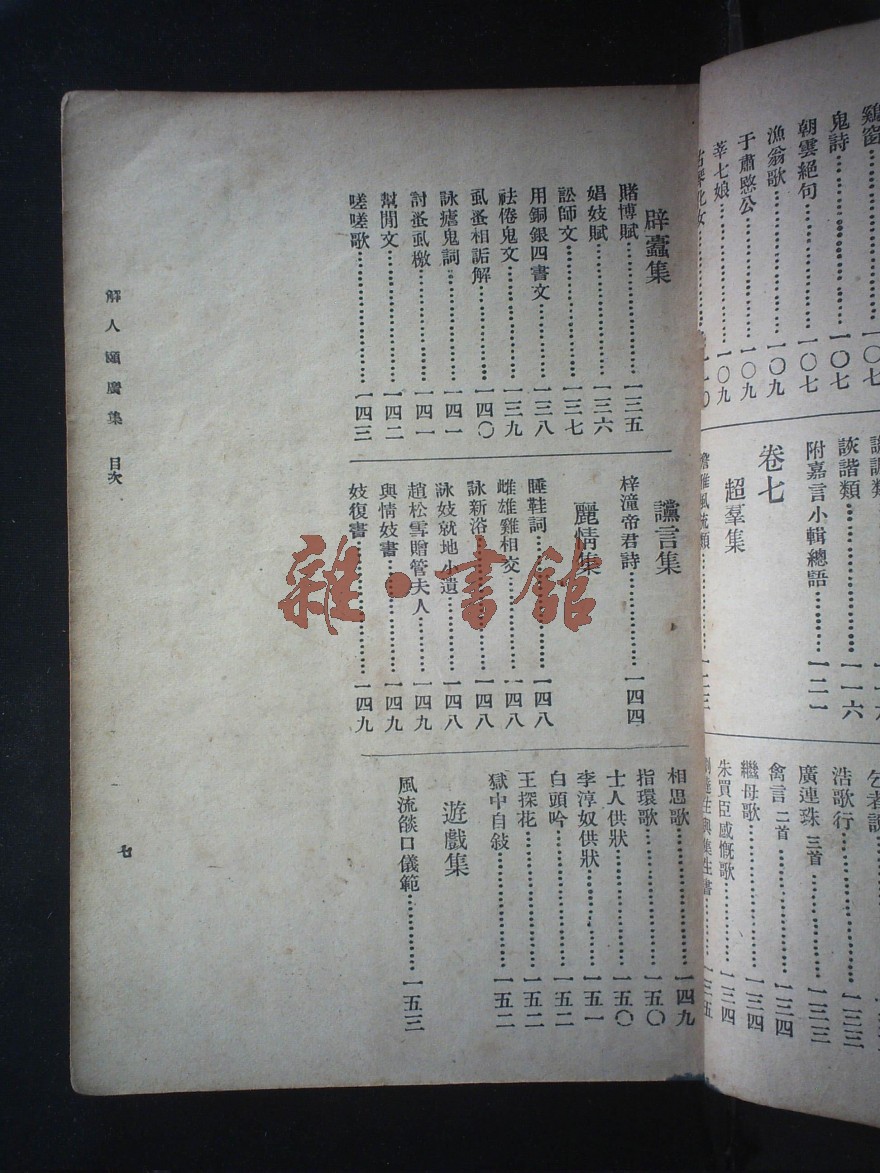 鷄窗……一〇七
鬼詩……一〇七
朝雲絕句……一〇七
漁翁歌……一〇九
于肅愍公……一〇九
莘七娘……一〇九
詼諧類……一一六
附嘉言小輯總語……一二一
卷七
超羣集
浩歌行……一三三
廣連珠 三首……一三三
禽言 二首……一三四
繼母歌……一三四
朱買臣感慨歌……一三四
辟蠹集
賭博賦……一三五
娼妓賦……一三六
訟師文……一三七
用銅銀四書文……一三八
祛倦鬼文……一三九
虱蚤相詬解……一四〇
詠瘧鬼詞……一四一
討蚤虱檄……一四一
幫閒文……一四二
嗟嗟歌……一四三
讜言集
梓潼帝君詩……一四四
麗情集
睡鞋詞……一四八
雌雄雞相交……一四八
詠新浴……一四八
詠妓就地小遺……一四八
趙松雪贈管夫人……一四九
與情妓書……一四九
妓復書……一四九
相思歌……一四九
指環歌……一五〇
士人供狀……一五〇
李淳奴供狀……一五一
白頭吟……一五二
王探花……一五二
獄中自敍……一五二
遊戲集
風流燄口儀範……一五三
解人頤廣集 目次
七
雜·書館